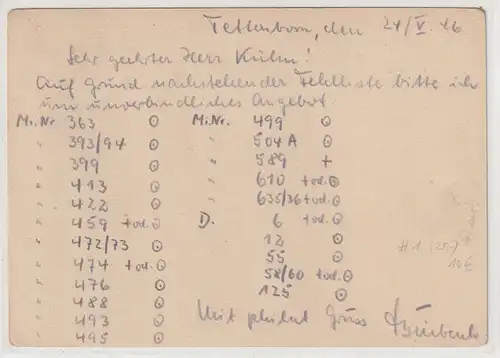 Tettenborn, den 24/V. 46
Sehr geehrter Herr Kühn!
Auf Grund nachstehender Fehlliste bitte ich
um unverbindliches Angebot.
Mi.Nr. 363 ⊙
" 393/94 ⊙
" 399 ⊙
" 413 ⊙
" 422 ⊙
" 459 + od. ⊙
" 472/73 ⊙
" 474 + od. ⊙
" 476 ⊙
" 488 ⊙
" 493 ⊙
" 495 ⊙
Mi.Nr. 499 ⊙
" 504 A ⊙
" 589 +
" 610 + od. ⊙
" 635/36 + od. ⊙
D. 6 + od. ⊙
12 ⊙
55 ⊙
58/60 + od. ⊙
125 ⊙
#1 (25,-)
10€
Mit philat Gruss